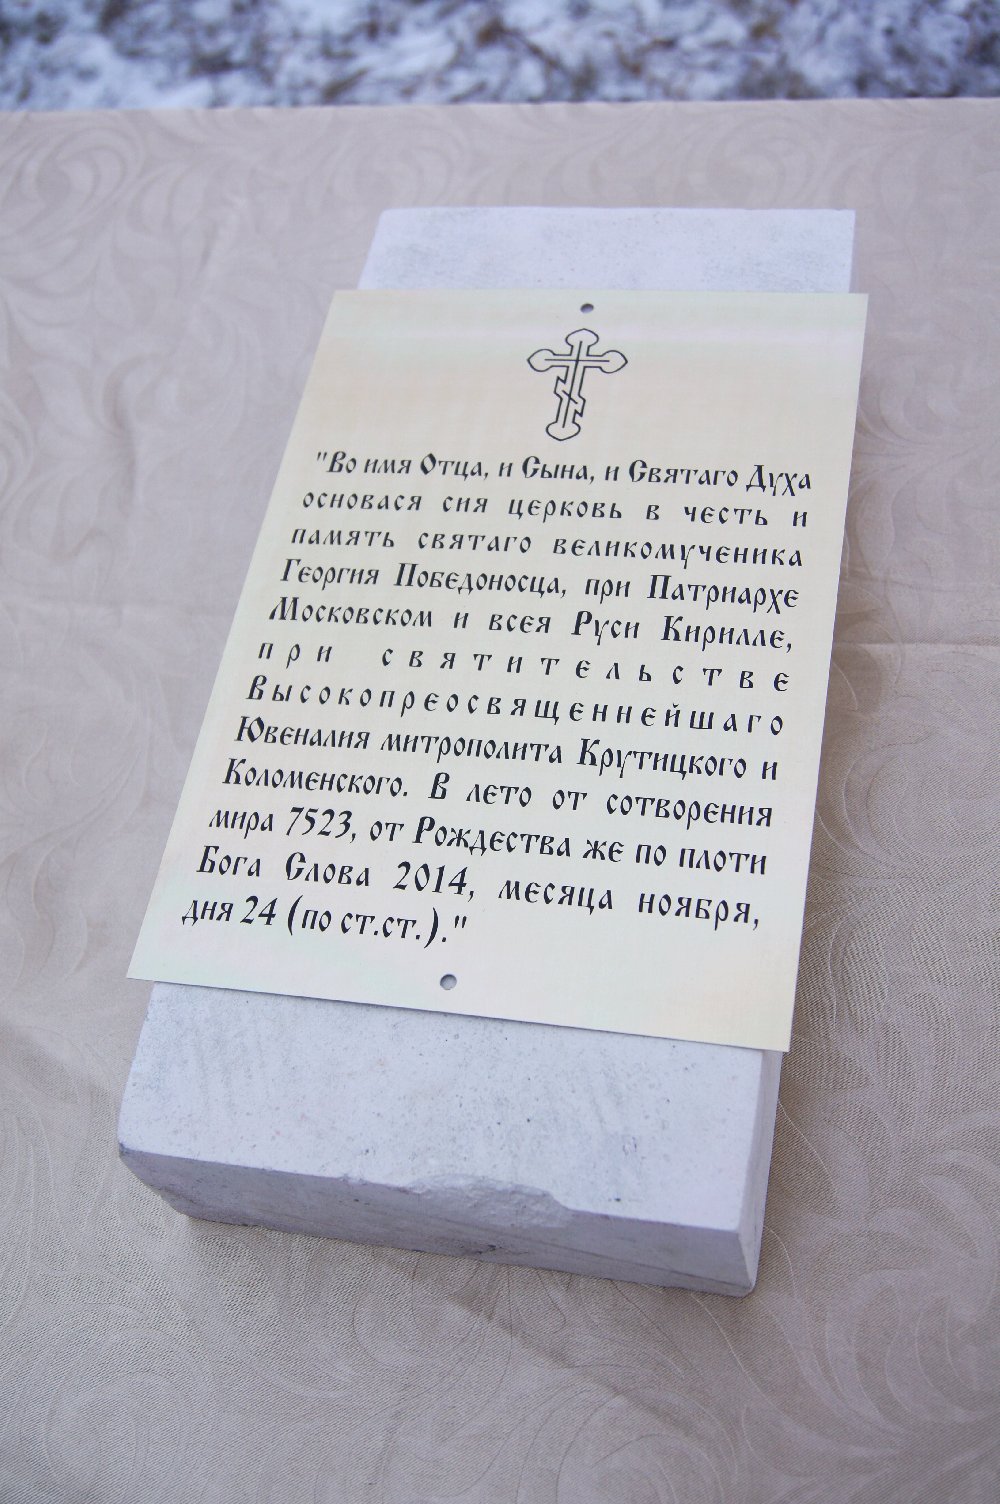 "Во имя Отца, и Сына, и Святаго Духа
основася сия церковь в честь и
память святаго великомученика
Георгия Победоносца, при Патриархе
Московском и всея Руси Кирилле,
при святительстве
Высокопреосвященнейшаго
Ювеналия митрополита Крутицкого и
Коломенского. В лето от сотворения
мира 7523, от Рождества же по плоти
Бога Слова 2014, месяца ноября,
дня 24 (по ст.ст.)."